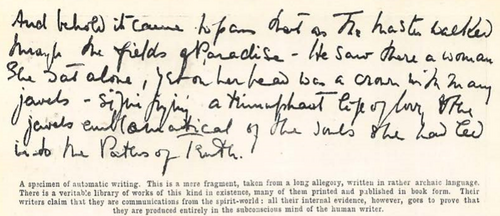 And behold it came to pass that as The Master walked
through the fields of Paradise - He saw there a woman
She sat alone, yet on her head was a crown with many
jewels - signifying a triumphant life of love & the
jewels emblematical of the souls she had led
into the Paths of Truth.
A specimen of automatic writing. This is a mere fragment, taken from a long allegory, written in rather archaic language.
There is a veritable library of works of this kind in existence, many of them printed and published in book form. Their
writers claim that they are communications from the spirit-world: all their internal evidence, however, goes to prove that
they are produced entirely in the subconscious mind of the human writer.